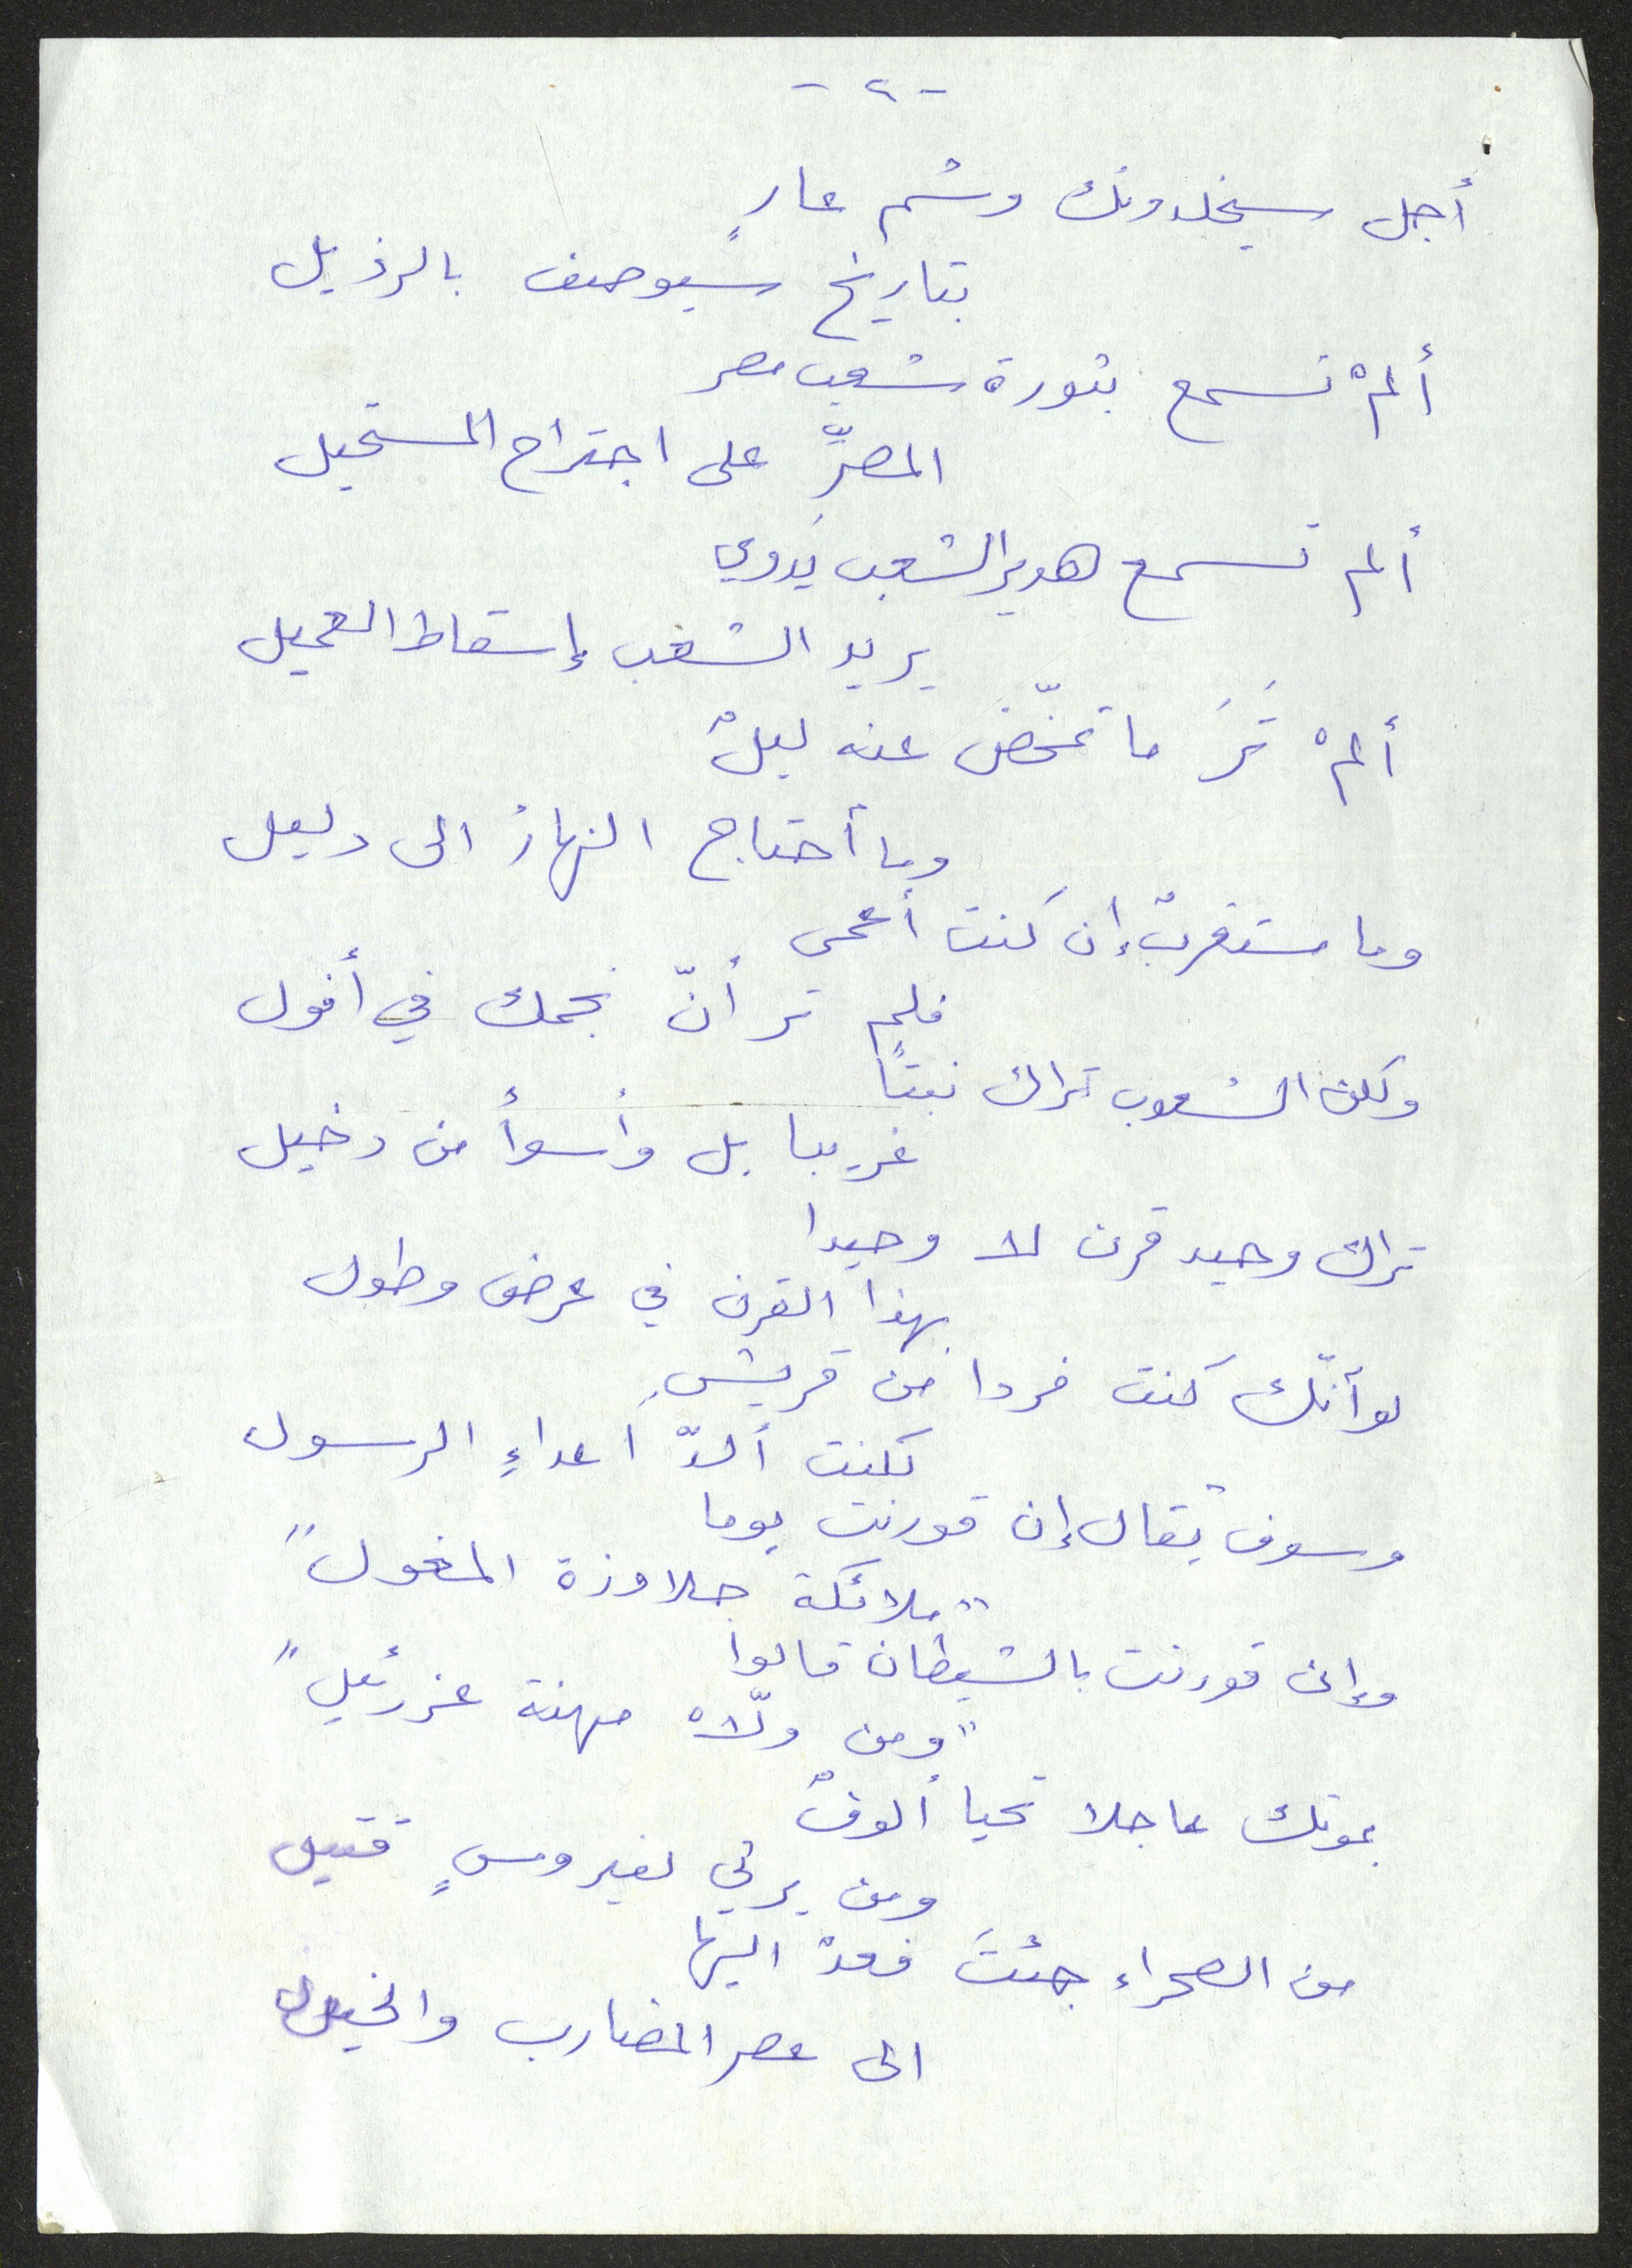 - ٢ -
أجل سيخلدونك وشم عارٍ
بتاريخ سيوصف بالرذيل
ألمْ تسمع بثورة شعب مصر
المصرِّ على اجتراح المستحيل
ألم تسمع هدير الشعب يَدوي
يريد الشعب إسقاط العميل
ألمْ تَرَ ما تمخّض عنه ليلٌ
وما أحتاج النهارُ الى دليل
وما مستغربٌ إن كنت أعمى
فلم تر أنّ نجمك في أفول
ولكن الشعوب تراك نبتًا
غريبا بل وأسوأ من دخيل
تراك وحيد قرن لا وحيدا
بهذا القرن في عرض وطول
لو أنّك كنت فردا من قريشٍ
لكنت ألدّ أعداءِ الرسول
وسوف يقال إن قورنت يوما
"ملائكة جلاوزة المغول"
وإن قورنت بالشيطان قالوا
"ومن ولّاه مهنة عزرئيل"
بموتك عاجلا تحيا ألوفٌ
ومن يرثي لفيروسٍ قتيل
من الصحراء جئتَ فعدْ اليها
الى عصر المضارب والخيول